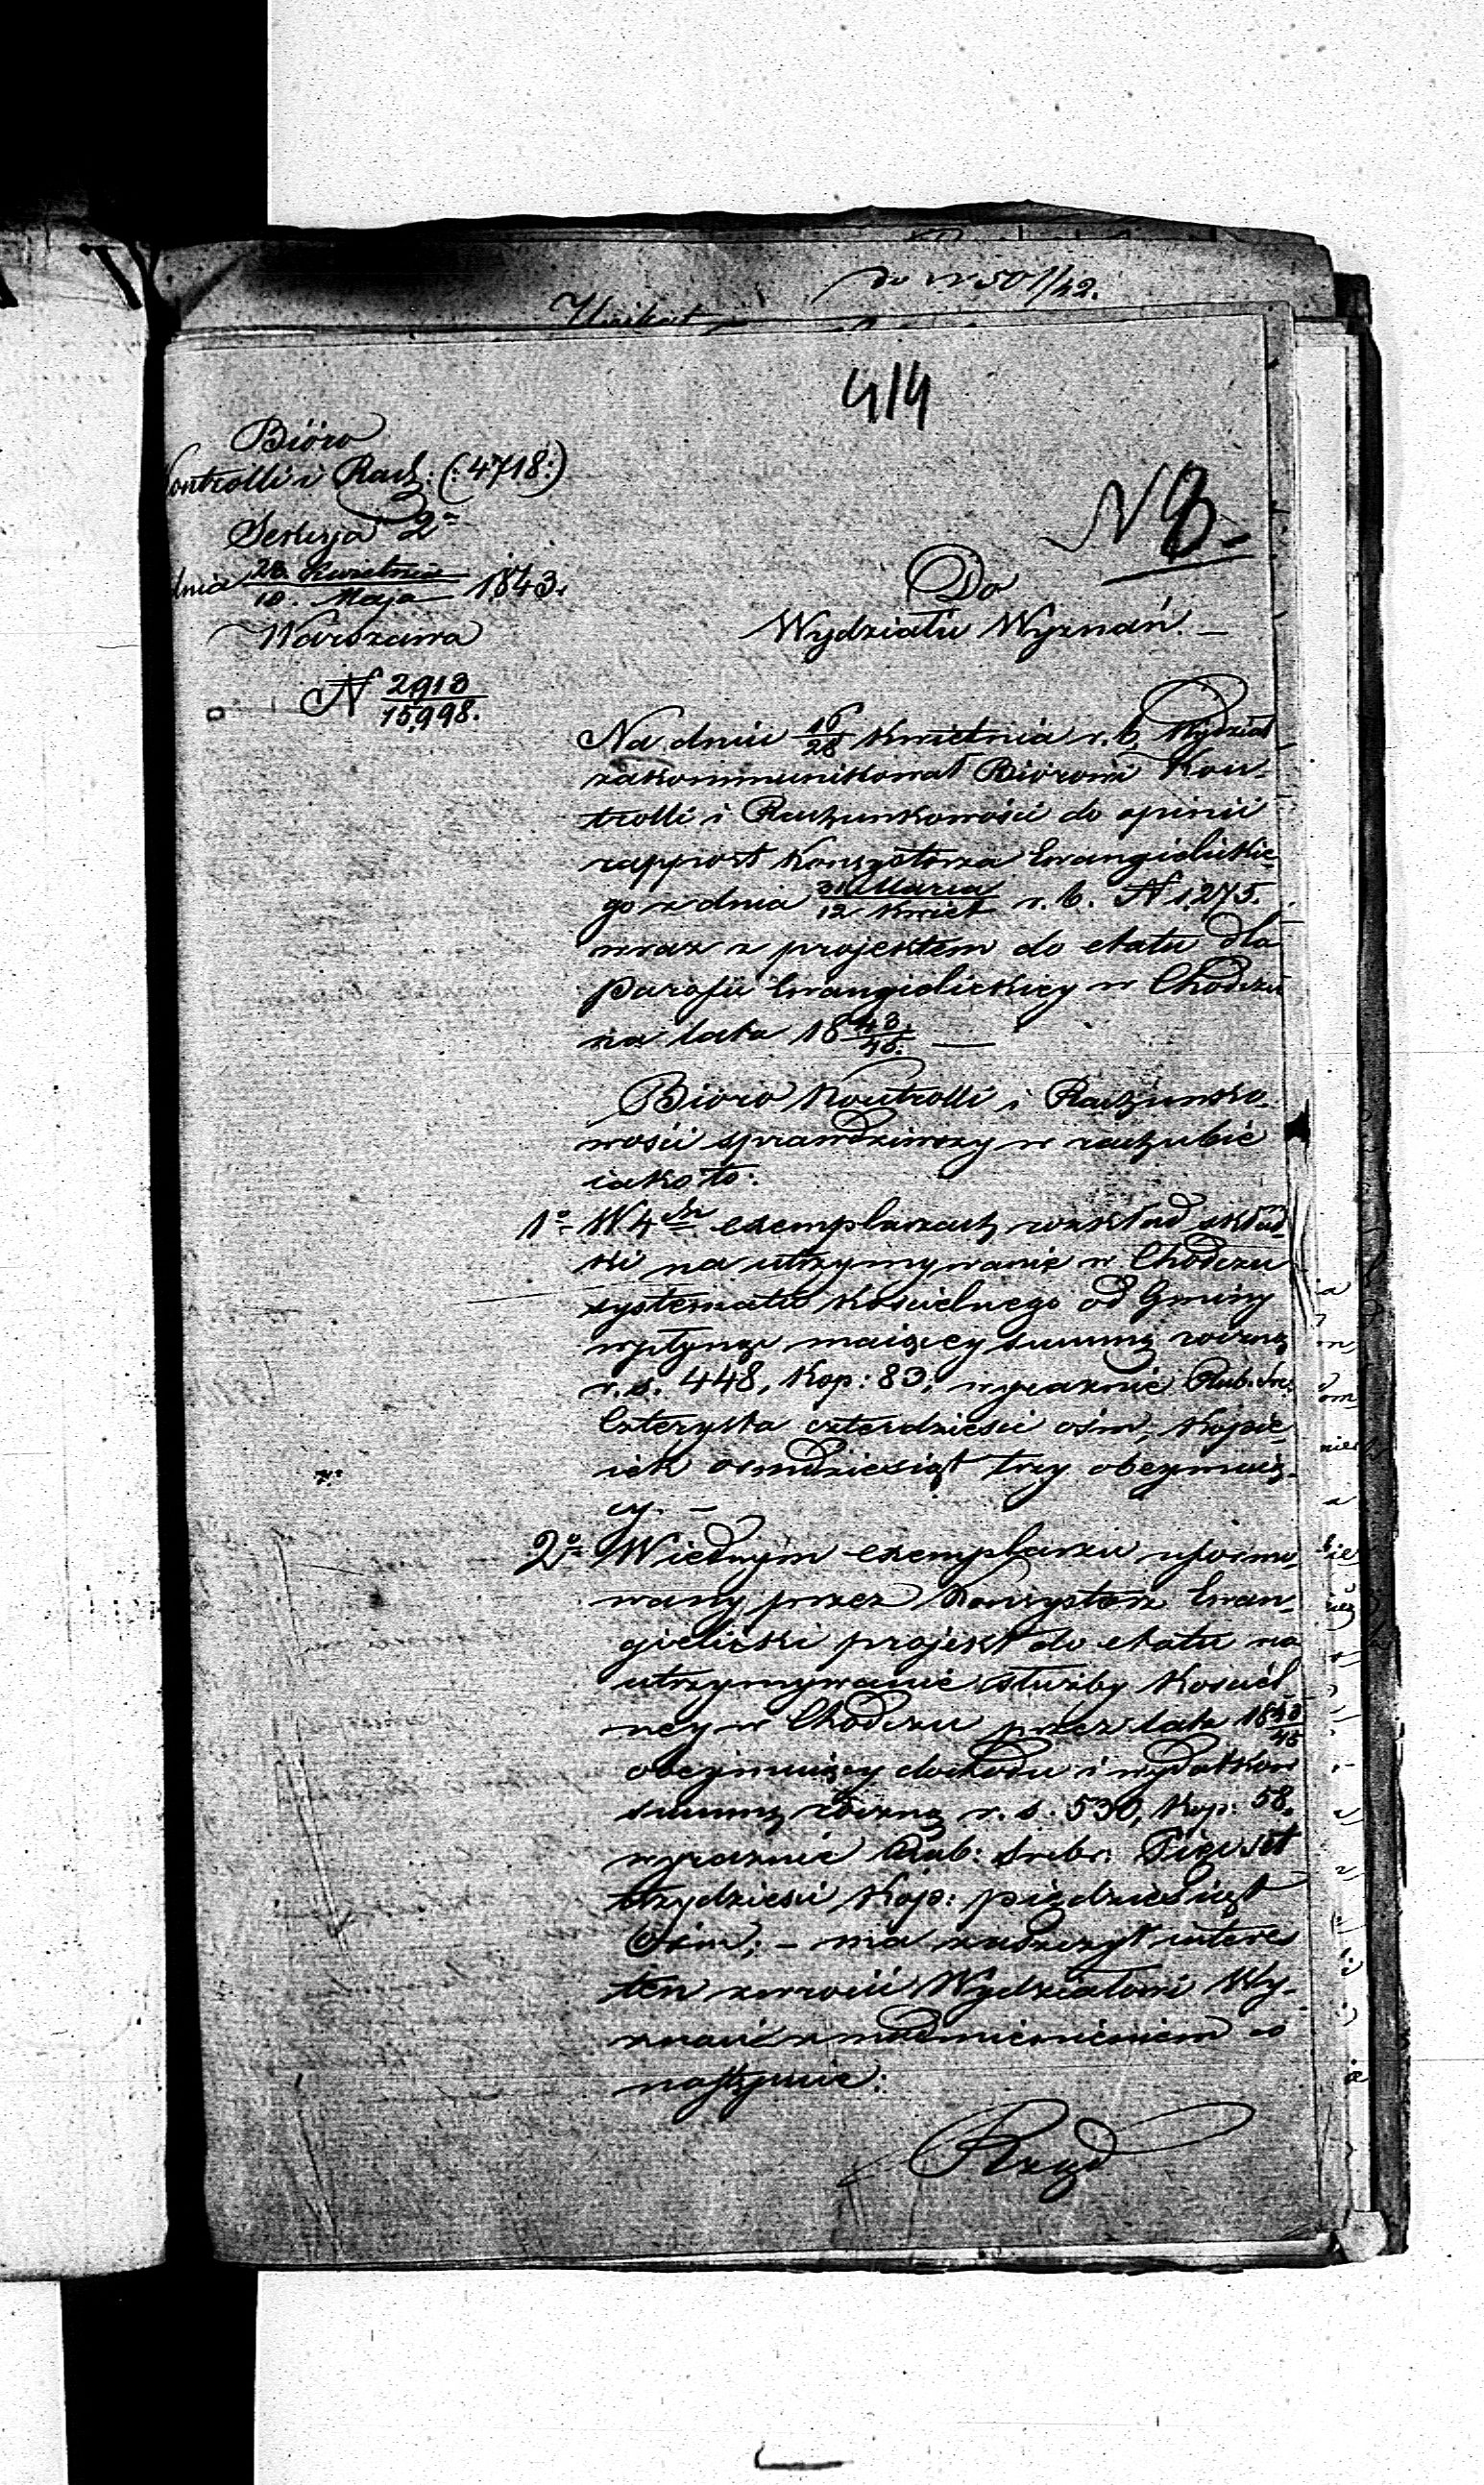 do N 501/42.
Unikat
414
Bióro
Kontrolli i Rach: (:4718:)
Sekcya 2ª
dnia 28 Kwietnia / 10. Maja 1843.
Warszawa
N 2913/15,998.
N 8.
Do
Wydziału Wyznań. –
Na dniu 16/28 Kwietnia r. b. Wydział
zakommunikował Biórowi Kon-
trolli i Rachunkowości do opinii
rapport Konsystorza Ewangielickie-
go z dnia 31 Marca / 12 Kwiet r. b. N 1,275.
wraz z projektem do etatu dla
Parafii Ewangielickiey w Chodczu
na lata 1843/45. —
Bióro Kontrolli i Rachunko-
wości sprawdziwszy w rachubie
iako to:
1º W 4ch exemplarzach rozkład skład-
ki na utrzymywanie w Chodczu
systematu kościelnego od Gminy
wpłynąć maiącey summę roczną
r. s. 448, Kop: 83, wyraźnie Rub. Sre:
Czterysta czterdzieści ośm, Kopie-
iek osmdziesiąt trzy obeymuią-
cy. –
2º W iednym exemplarzu uformo-
wany przez Konsystorz Ewan-
gielicki projekt do etatu na
utrzymywanie służby Kościel-
ney w Chodczu przez lata 1843/45
obeymuiący dochodu i wydatków
summę roczną r. s. 530, Kop: 58.
wyraźnie Rub: Srebr: Pięćset
trzydzieści Kop: pięćdziesiąt
Ośm; – ma zaszczyt interes
ten zwrócić Wydziałowi Wy-
znań z nadmienieniem co
następuie:
Rząd